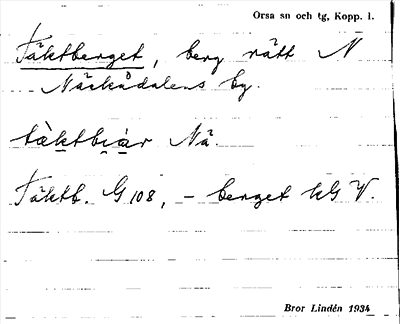 Orsa sn och tg, Kopp. l.
Täktberget, berg rätt N
Näckådalens by.
tὲktbi̯ạr Nä.
Täktb. G 108, – berget kG V.
Bror Lindén 1934